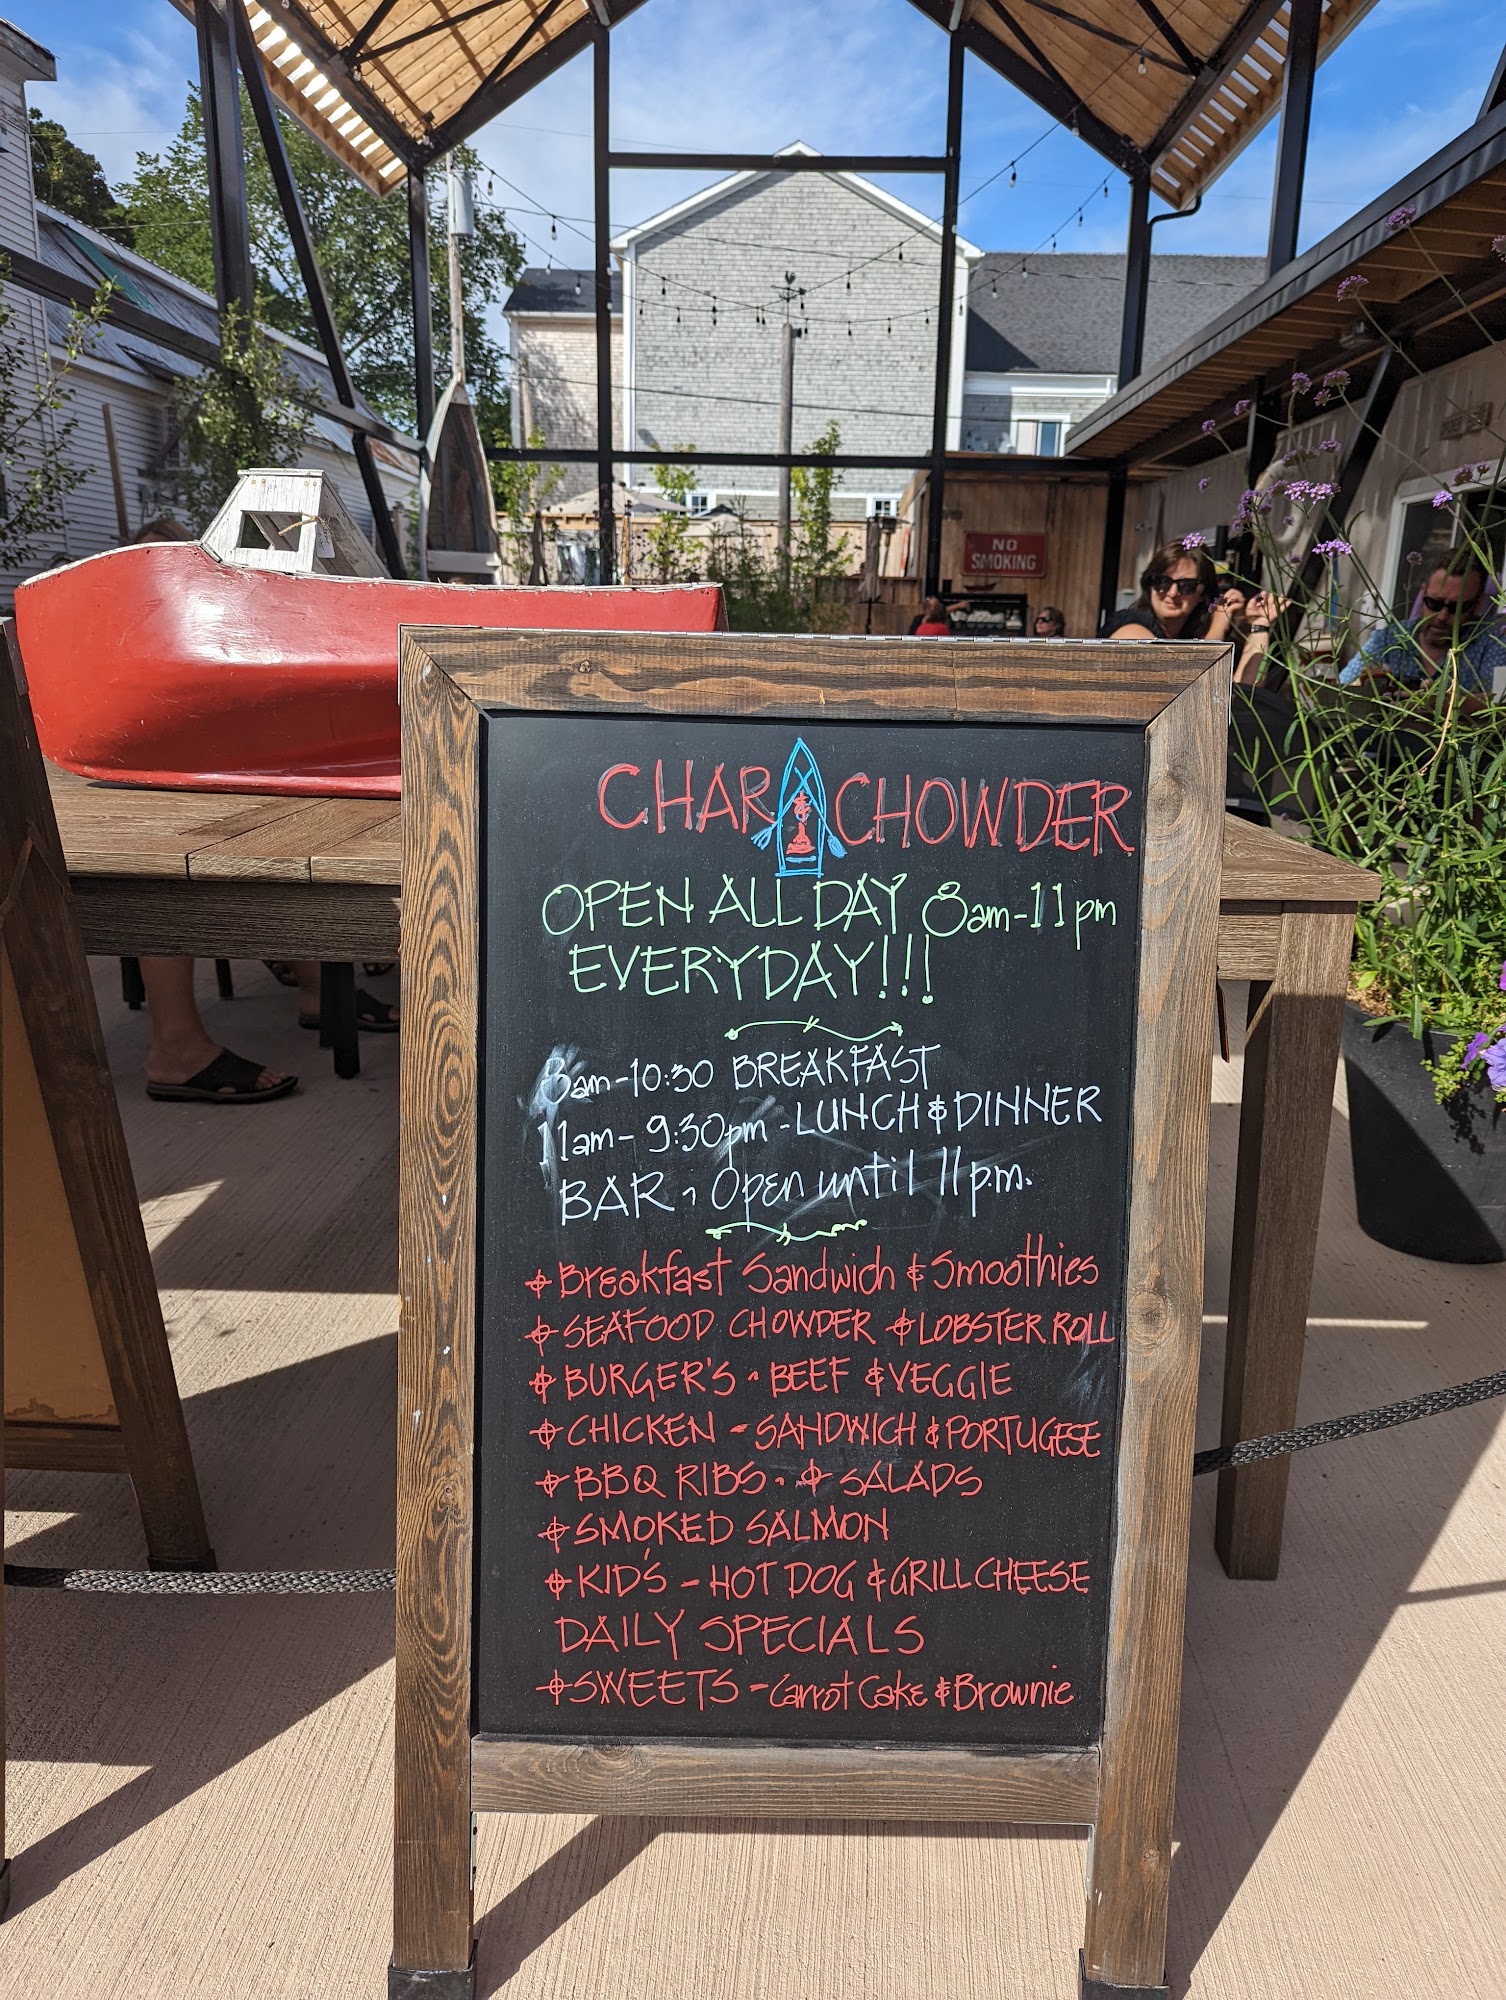 NO
SMOKING
CHAR & CHOWDER
OPEN ALL DAY 8am-11pm
EVERYDAY!!!
8am-10:30 BREAKFAST
11am-9:30pm-LUNCH & DINNER
BAR - Open until 11 p.m.
Breakfast Sandwich & Smoothies
SEAFOOD CHOWDER & LOBSTER ROLL
BURGER'S - BEEF & VEGGIE
CHICKEN - SANDWICH & PORTUGESE
BBQ RIBS - & SALADS
SMOKED SALMON
KID'S - HOT DOG & GRILL CHEESE
DAILY SPECIALS
SWEETS - Carrot Cake & Brownie